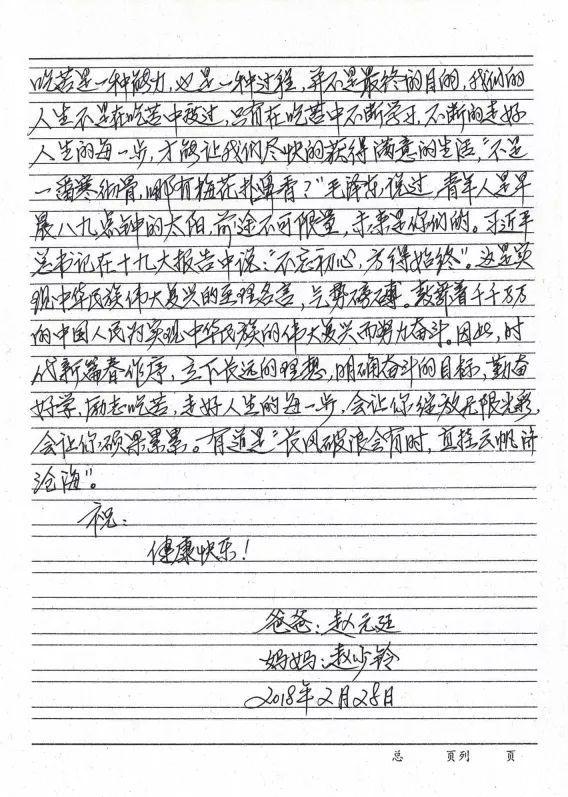 吃苦是一种能力，也是一种过程，并不是最终的目的，我们的
人生不是在吃苦中度过，只有在吃苦中不断学习，不断的走好
人生的每一步，才能让我们尽快的获得满意的生活，“不是
一番寒彻骨，哪有梅花扑鼻香？”毛泽东说过，青年人是早
晨八九点钟的太阳，前途不可限量，未来是你们的。习近平
总书记在十九大报告中说：“不忘初心，方得始终”。这是实
现中华民族伟大复兴的至理名言，气势磅礴。鼓舞着千千万万
的中国人民为实现中华民族的伟大复兴而努力奋斗。因此，时
代新篇春作序，立下长远的理想，明确奋斗的目标，勤奋
好学，励志吃苦，走好人生的每一步，会让你绽放无限光彩，
会让你硕果累累。有道是“长风破浪会有时，直挂云帆济
沧海”。
祝：
健康快乐！
爸爸：赵元廷
妈妈：赵少铃
2018年2月28日
总 页列 页